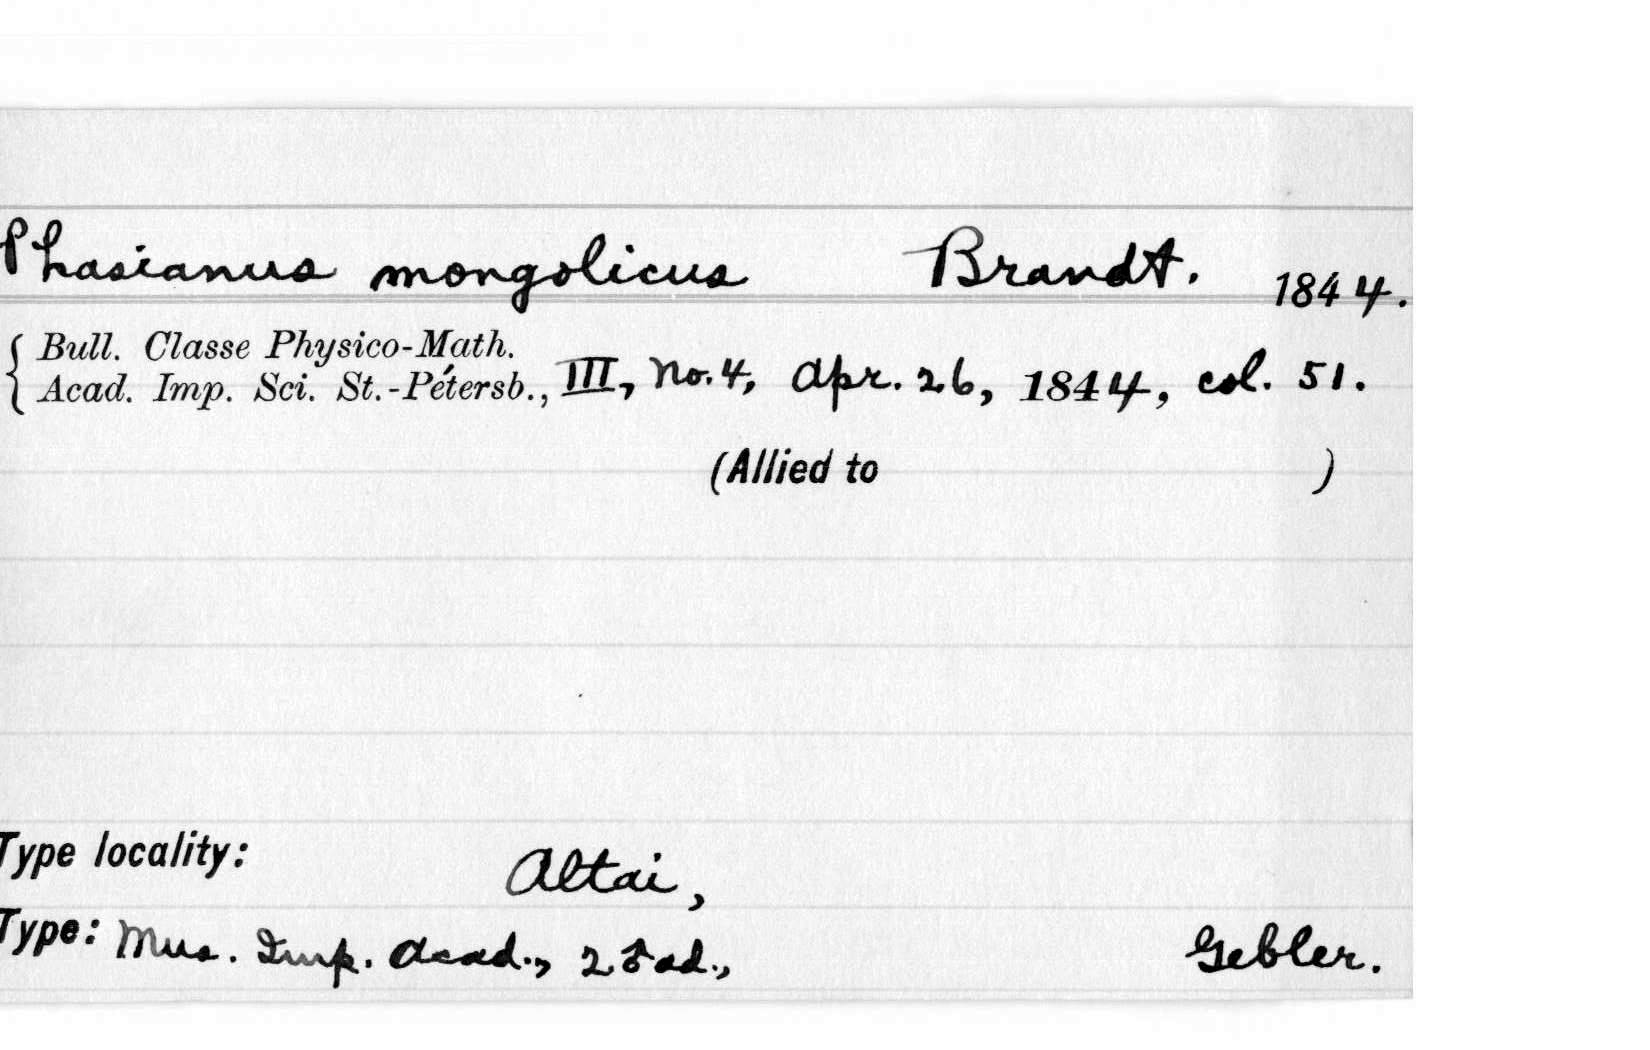 Phasianus mongolicus Brandt. 1844.
Bull. Classe Physico-Math.
Acad. Imp. Sci. St.-Pétersb., III, No. 4, Apr. 26, 1844, col. 51.
(Allied to )
Type locality: Altai,
Type: Mus. Imp. Acad., 2 ♂ ad., Gebler.